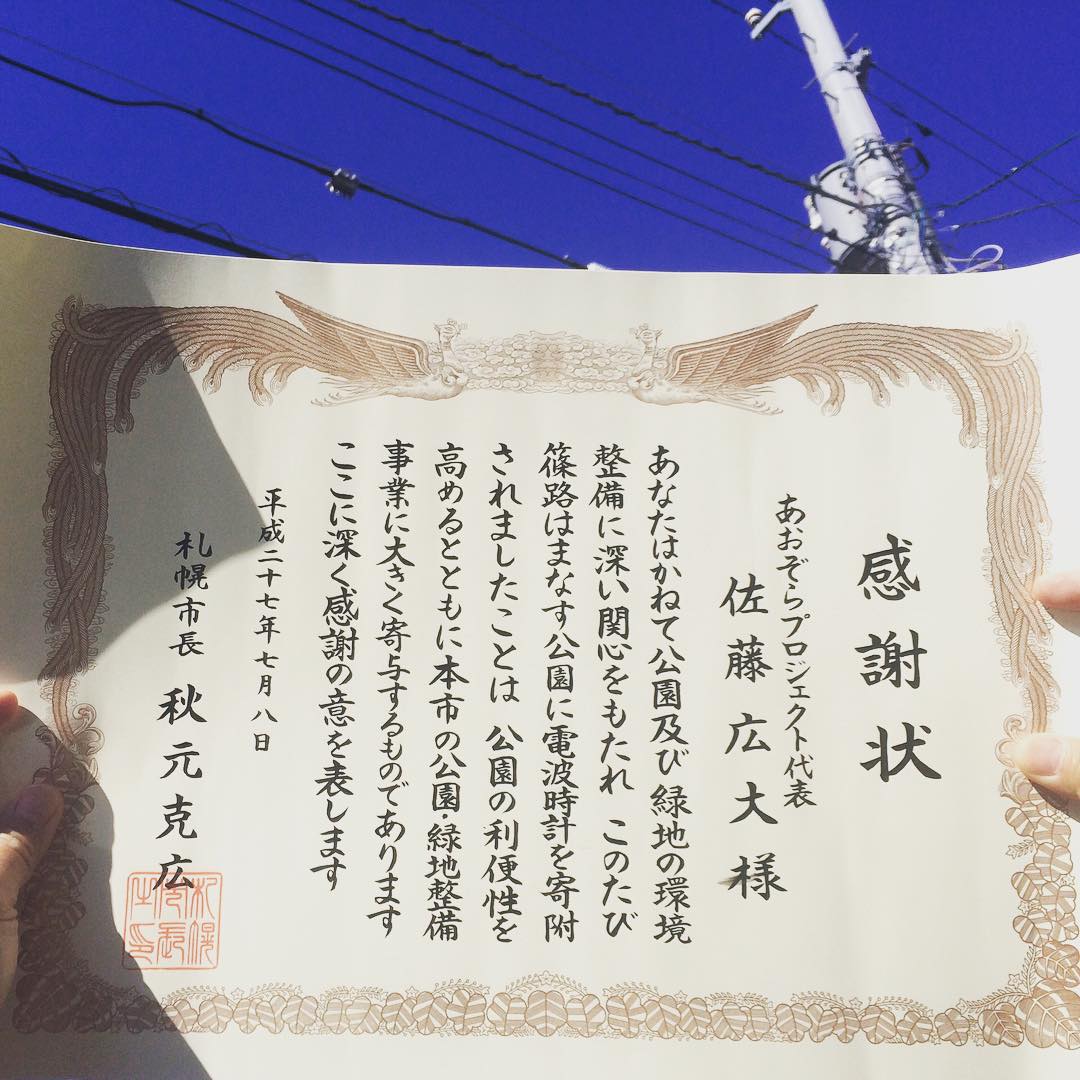 感謝状
あおぞらプロジェクト代表
佐藤広大様
あなたはかねて公園及び緑地の環境
整備に深い関心をもたれ このたび
篠路はまなす公園に電波時計を寄附
されましたことは 公園の利便性を
高めるとともに本市の公園・緑地整備
事業に大きく寄与するものであります
ここに深く感謝の意を表します
平成二十七年七月八日
札幌市長 秋元克広
札幌
市長
之印